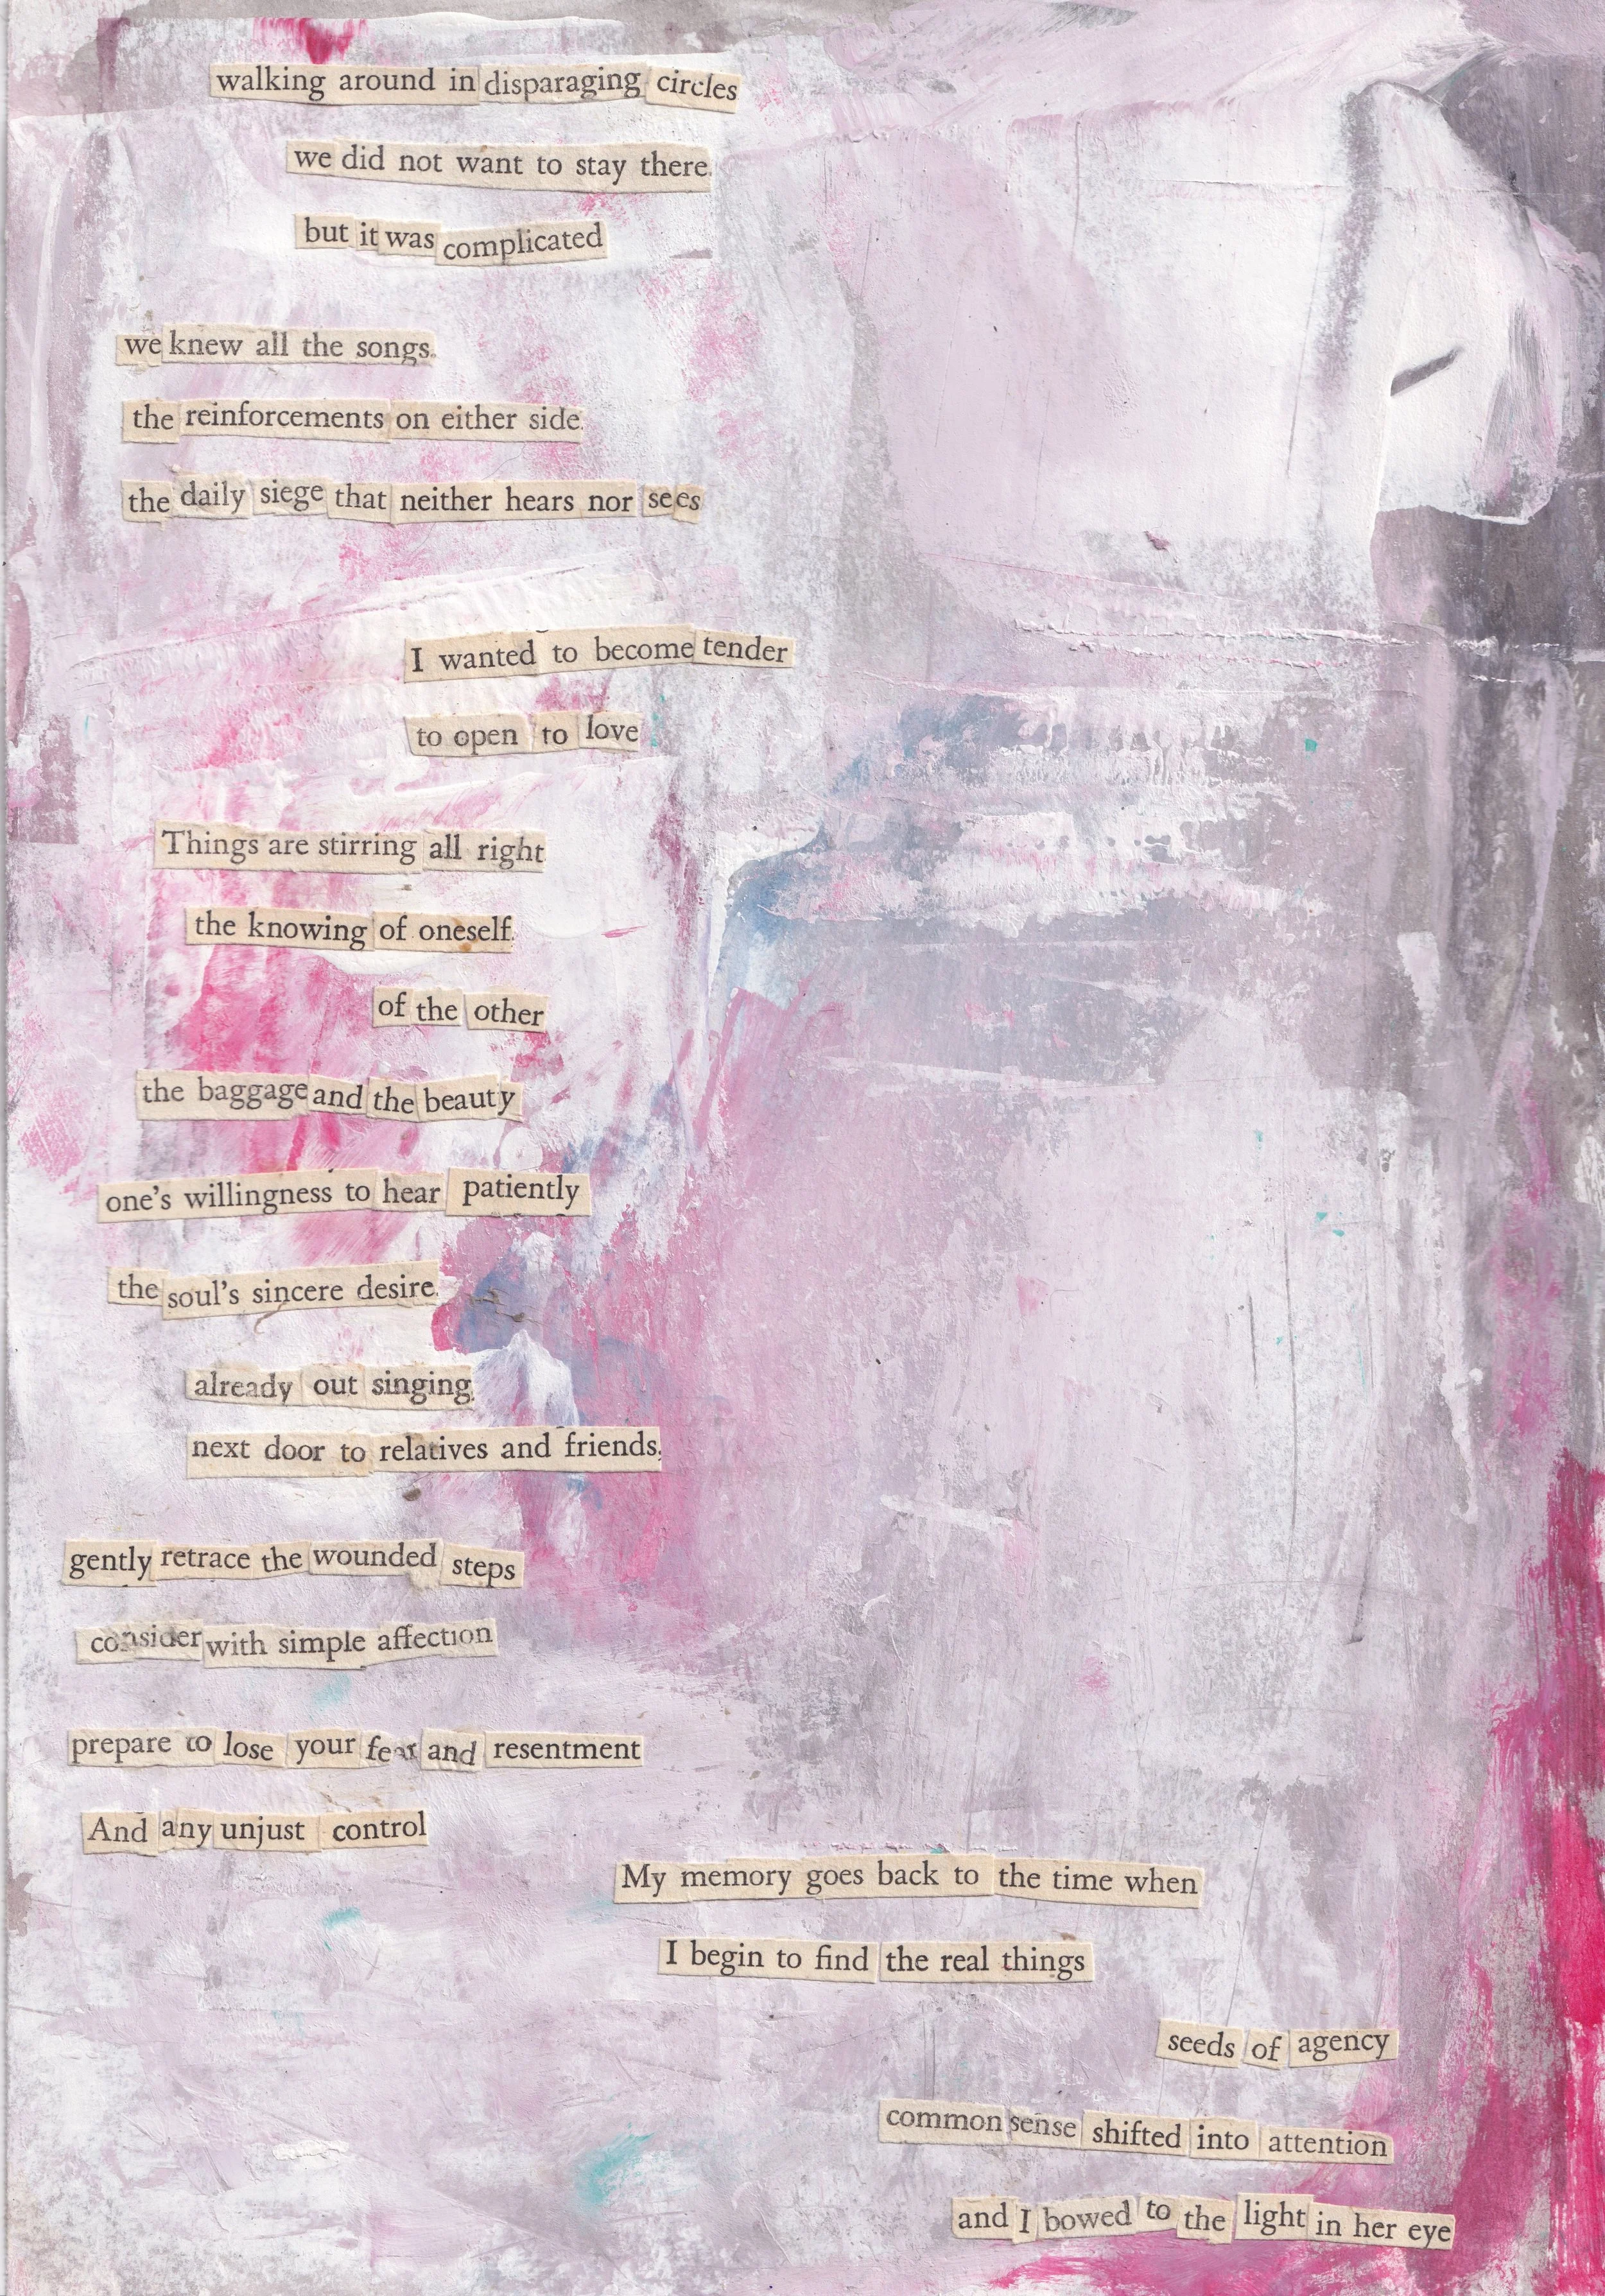 walking around in disparaging circles
we did not want to stay there.
but it was complicated
we knew all the songs.
the reinforcements on either side.
the daily siege that neither hears nor sees
I wanted to become tender
to open to love
Things are stirring all right.
the knowing of oneself.
of the other
the baggage and the beauty
one's willingness to hear patiently
the soul's sincere desire.
already out singing.
next door to relatives and friends,
gently retrace the wounded steps
consider with simple affection
prepare to lose your fear and resentment
And any unjust control
My memory goes back to the time when
I begin to find the real things
seeds of agency
common sense shifted into attention
and I bowed to the light in her eye